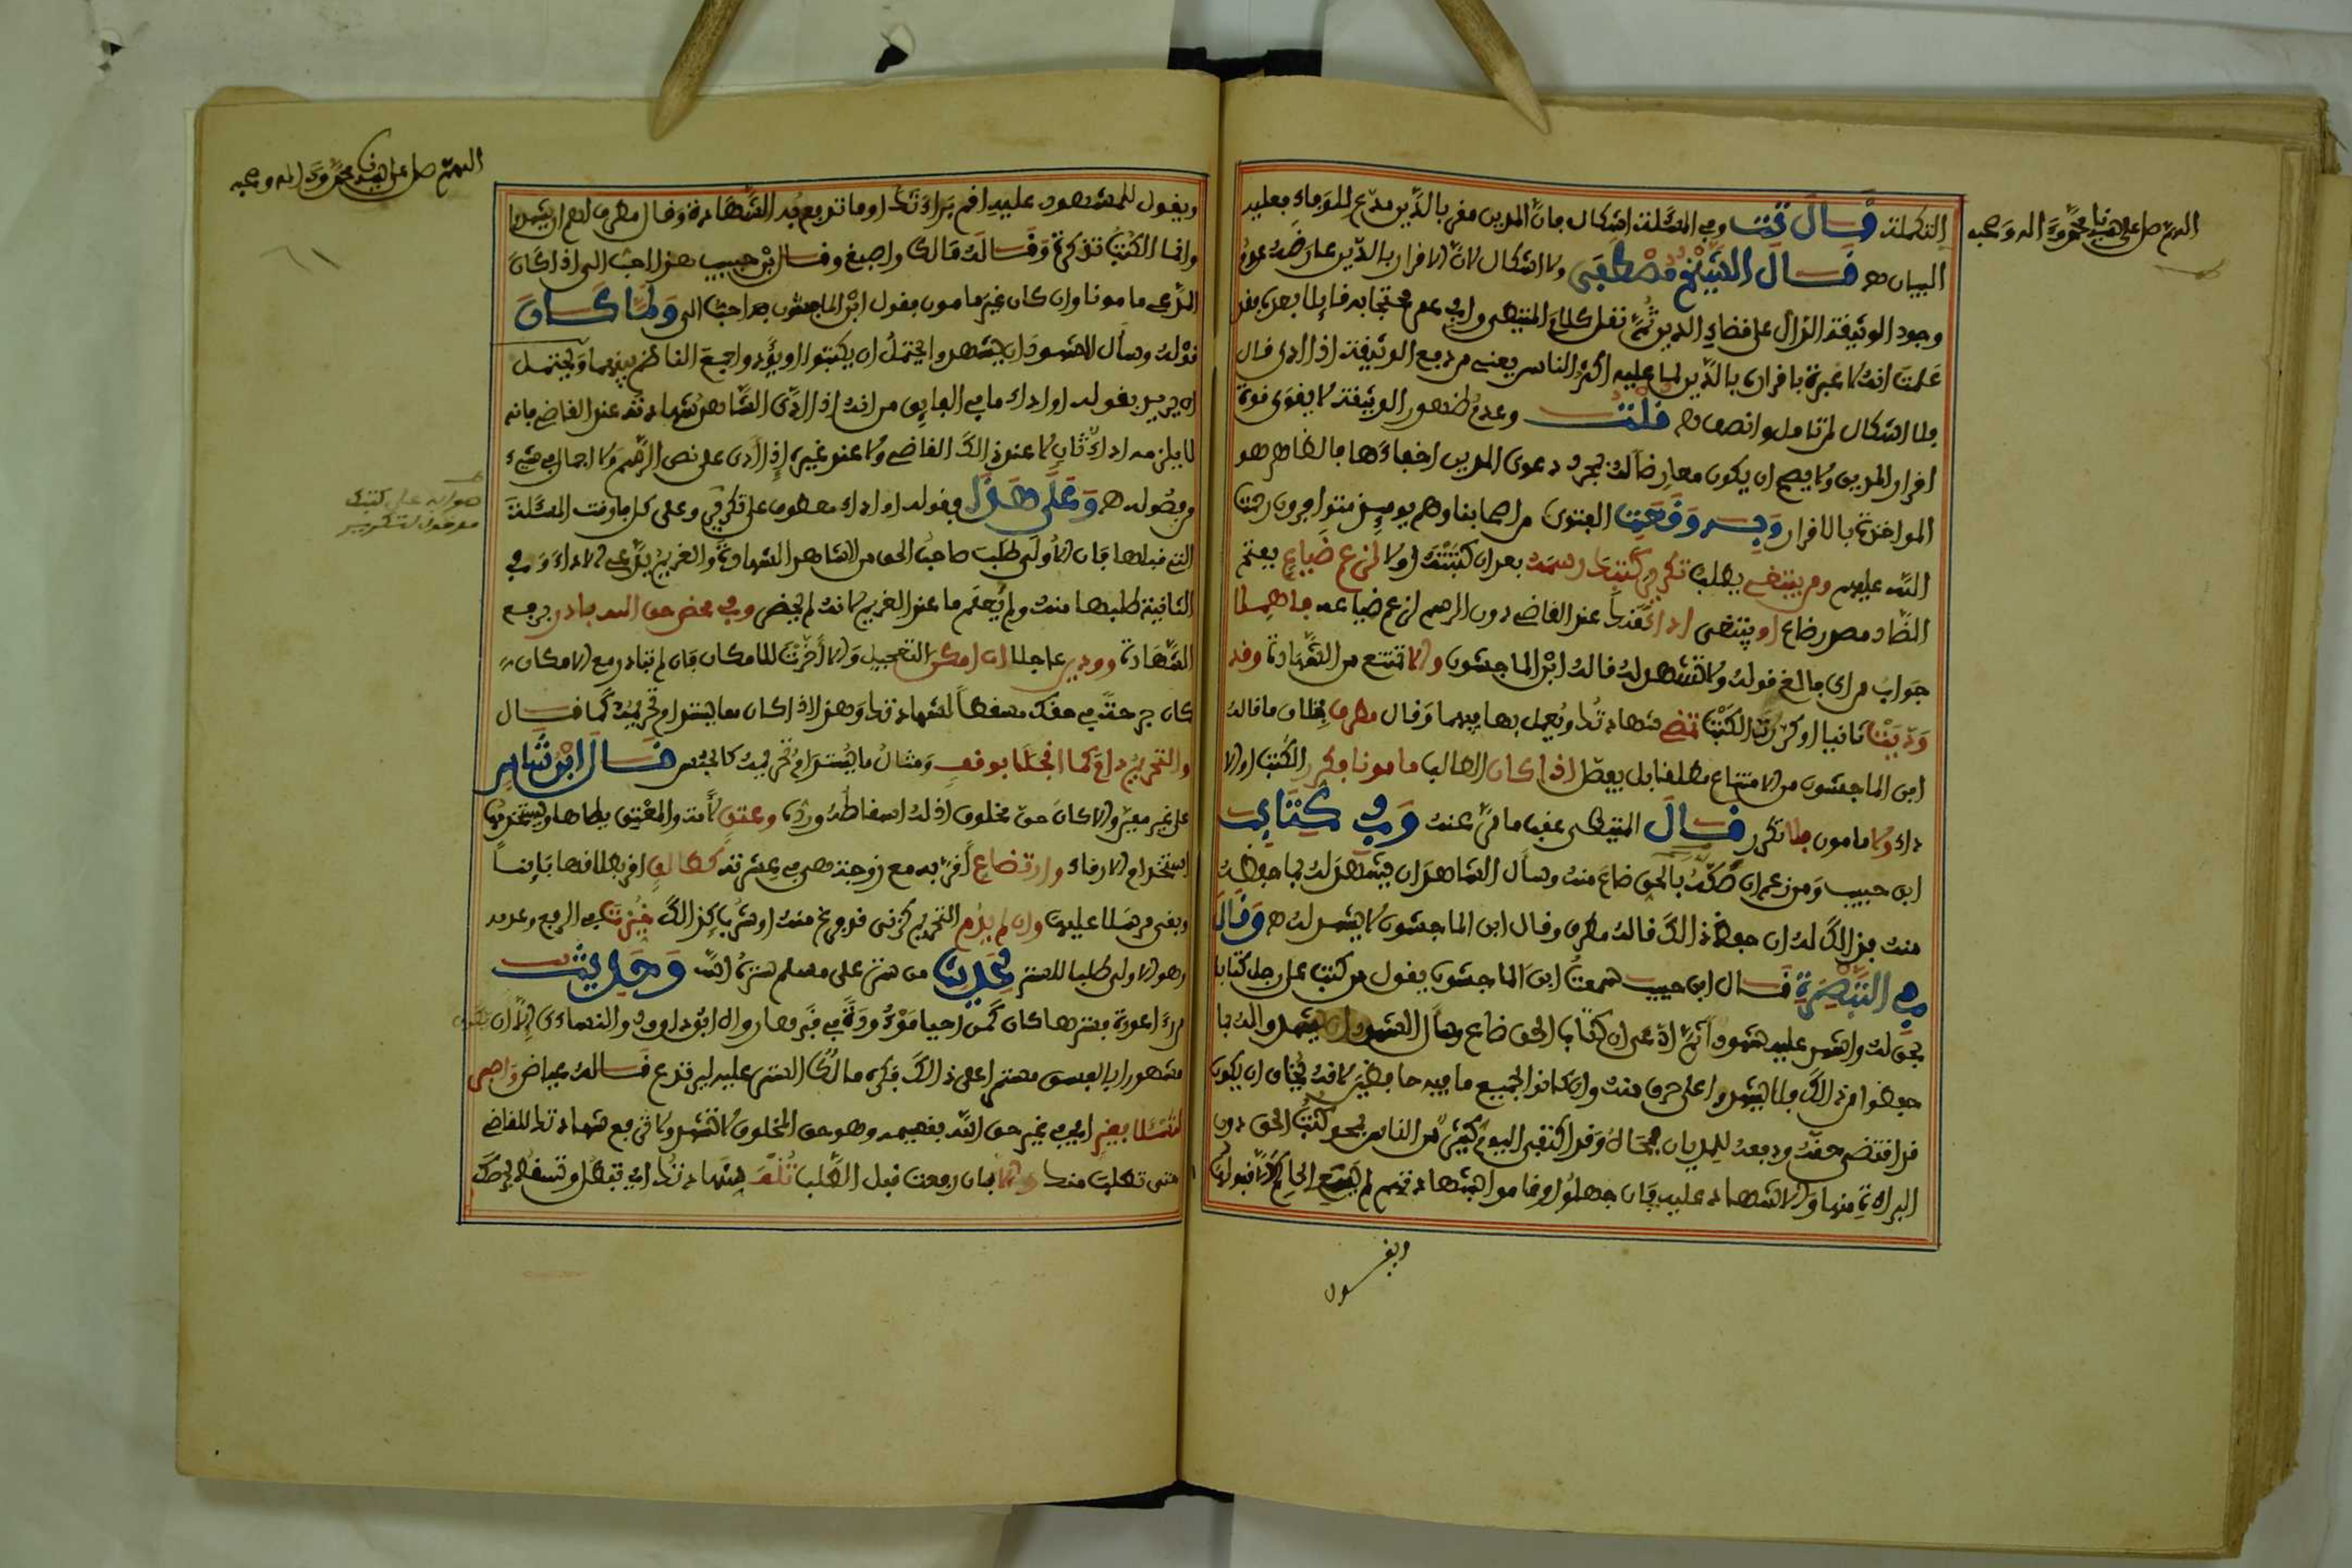 اللهم صل على سيدنا محمد وءاله وصحبه
التكملة قال تت وفي المسئلة اشكال بان المدين مقر بالدين مدع للوفاء فعليه
البيان هـ قال الشيخ مصطفى ولا اشكال لان الاقرار بالدين عارضه عدم
وجود الوثيقة الدال على قضاء الدين ثم نقل كلام المتيطي وابن
علمت انه لا عبرة باقراره بالدين لما عليه اكثر الناس يعني من دفع الوثيقة اذا ادى قال
فلا اشكال لمن تامل وانصف هـ قلت وعدم ظهور الوثيقة لا يقوى قوة
اقرار المدين ولا يصح ان يكون معارضا له بمجرد دعوى المدين اخفاءها فالظاهر هو
المواخذة بالاقرار وبه وقعت الفتوى من اصحابنا وهم يوميذ متوافرون رحمت
الله عليهم ومن ينتفى بطلب تكرير كتبك رسمه بعد ان كتبته اولا لزعم ضياع بفتح
الضاد مصدر ضاع او ينتفى اداءك عند القاضي دون الرسم لزعم ضياعه فاهملا
جواب من اي فالغ قوله ولا تشهد له قاله ابن الماجشون والا تمتنع من الشهادة وقد
وديتها ثانيا او كررت الكتب تمض شهادتك ويعمل بها فيهما وقال مطرف بخلاف ما قاله
ابن الماجشون من الامتناع مطلقا بل يفصل اذا كان الطالب مامونا فكرر الكتب او الا
داء ولا مامون فلا تكرر قال المتيطي عقب ما مر عنه وفي كتاب
ابن حبيب ومن زعم ان صكه بالحق ضاع منه وسأل الشاهد ان يشهد له بما حفظه
منه فذالك له ان حفظ ذالك قاله مطرف وقال ابن الماجشون لا يشهد له هـ وقال
في التبصرة قال ابن حبيب سمعت ابن الماجشون يقول من كتب على رجل كتابا
بحق له واشهد عليه شهودا ثم ادعى ان كتاب الحق ضاع وسأل الشهود ان يشهدوا له بما
حفظوا من ذالك فلا يشهدوا على حرف منه وان كانوا لجميع ما فيه حافظين لانه يخاف ان يكون
قد اقتضى حقه ودفعه للمديان فمحاه وقد اكتفى اليوم كثير من الناس بمحو كتب الحق دون
البراءة منها والاشهاد عليه فان جهلوا وقاموا بشهادتهم لم يسع الحاكم الا قبولها
ويقول
اللهم صل على سيدنا محمد وءاله وصحبه
ويقول للمشهود عليه اقم براءتك او ما تدفع به الشهادة وقال مطرف لهم ان يشهدوا
وانما الكتب تذكرة وقاله مالك واصبغ وقال ابن حبيب هذا احب الي اذا كان
المدعي مامونا وان كان غير مامون فقول ابن الماجشون هذا احب الي ولما كان
قوله وسأل الشهود ان يشهدوا يحتمل ان يكتبوا او يؤدوا جمع الناظم بينهما ويحتمل
ان يريد بقوله او اداء ما في الفايق من انه اذا ادى الشاهد شهادته عند القاضي فانه
لا يلزمه اداء ثان لا عند ذالك القاضي ولا عند غيره اذ ادى على نص الرسم ولا اجمال في شيء
من فصوله هـ وعلى هذا فقوله او اداء معطوف على تكرير وعلى كل فارقت المسئلة
التي قبلها فان الاولى طلب صاحب الحق من الشاهد الشهادة والغريم يدعي الاداء وفي
الثانية طلبها منه ولم يعلم ما عند الغريم لانه لم يحضر وفي محض حق الله بادر برفع
الشهادة وودين عاجلا ان امكن التعجيل والا أخرت للامكان فان لم تبادر مع الامكان
كان جرحة في حقك مسقطا لشهادتك وهذا اذا كان مما يستدام تحريمه كما قال
والتحريم دام كما انجلا بوقف ومثال ما يستدام تحريمه كالحبس قال ابن شاس
على غير معين والا كان حق مخلوق اذ له اسقاطه ورده وعتق لأمة والمعتق يطاها ويستخدمها
استخدام الارقاء وارتضاع أقر به مع زوجته هي في عشرته كطالق اقر بطلاقها بائنا
وبقي مرسلا عليها وان لم يدم التحريم كزنى قد وقع منه او شرب كذالك خيرتك في الرفع وعدمه
وهو الاولى طلبا للستر لحديث من ستر على مسلم ستره الله وحديث
من راى عورة فسترها كان كمن احيا موءودة في قبرها رواه ابو داوود والنساءي الا ان يكون
مشهورا بالفسق مستمرا على ذالك فكره مالك الستر عليه ليرتدع قاله عياض واصغ
امتثلا بغير اي في غير حق الله بقسيمه وهو حق المخلوق لا تشهد ولا ترفع شهادتك للقاضي
حتى تطلب منك والا فان رفعت قبل الطلب تلغى شهادتك اي تبطل وتسقط لحرصك
صوابه على كتبك
معرفون لتكرير